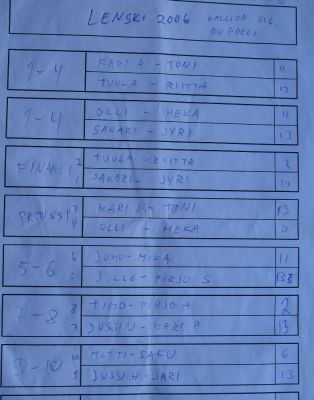 LENSKI 2006 KALLION SIG.
DUPPELI
1-4 KARI A - TONI 11
TUULA - RIITTA 13
1-4 OLLI - HEKA 11
SAKARI - JYRI 13
FINAALI 2 TUULA - RIITTA 2
1 SAKARI - JYRI
PRONSSI 3 KARI A - TONI 13
4 OLLI - HEKA 0
5-6 6 JUHO - MIKA 11
5 - PIRJO S
7-8 8 TIMO - PIRJO H 2
7 JUSTIN - KARI P 13
9-10 10 MATTI - SAKU 6
9 JUSSI H - JARI 13